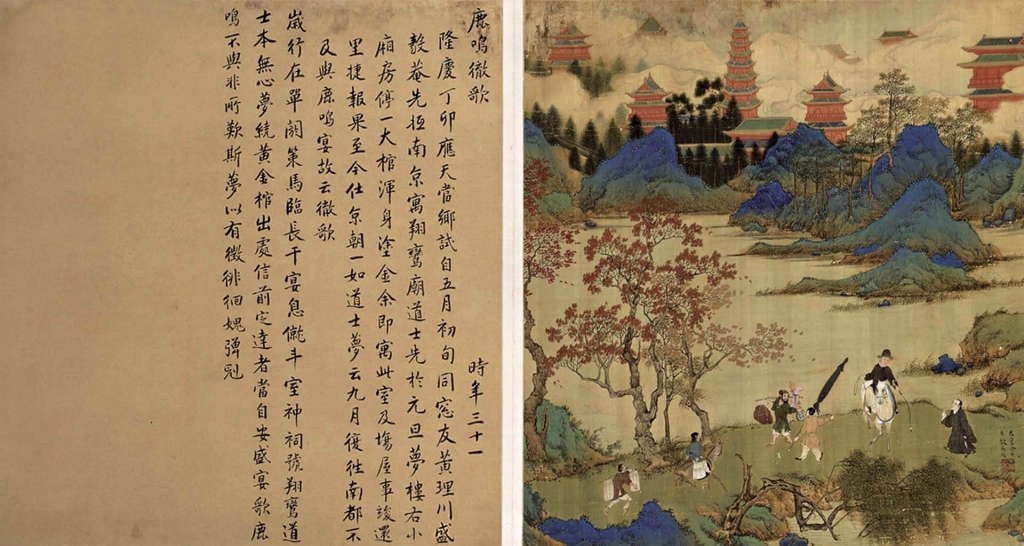 鹿鳴徹歌 時年三十一
隆慶丁卯應天當鄉試自五月初旬同窓友黃理川盛
毅菴先抵南京寓翔鸞廟道士先於元旦夢樓右小
廂房停一大棺渾身塗金余即寓此室及塲屋事竣還
里捷報果至今仕京朝一如道士夢云九月復往南都不
及與鹿鳴宴故云徹歌
歲行在單閼策馬臨長干宴息僦斗室神祠號翔鸞道
士本無心夢繞黃金棺出處信前定達者當自安盛宴歌鹿
鳴不與非所歎斯夢以有徵徘徊媿彈冠